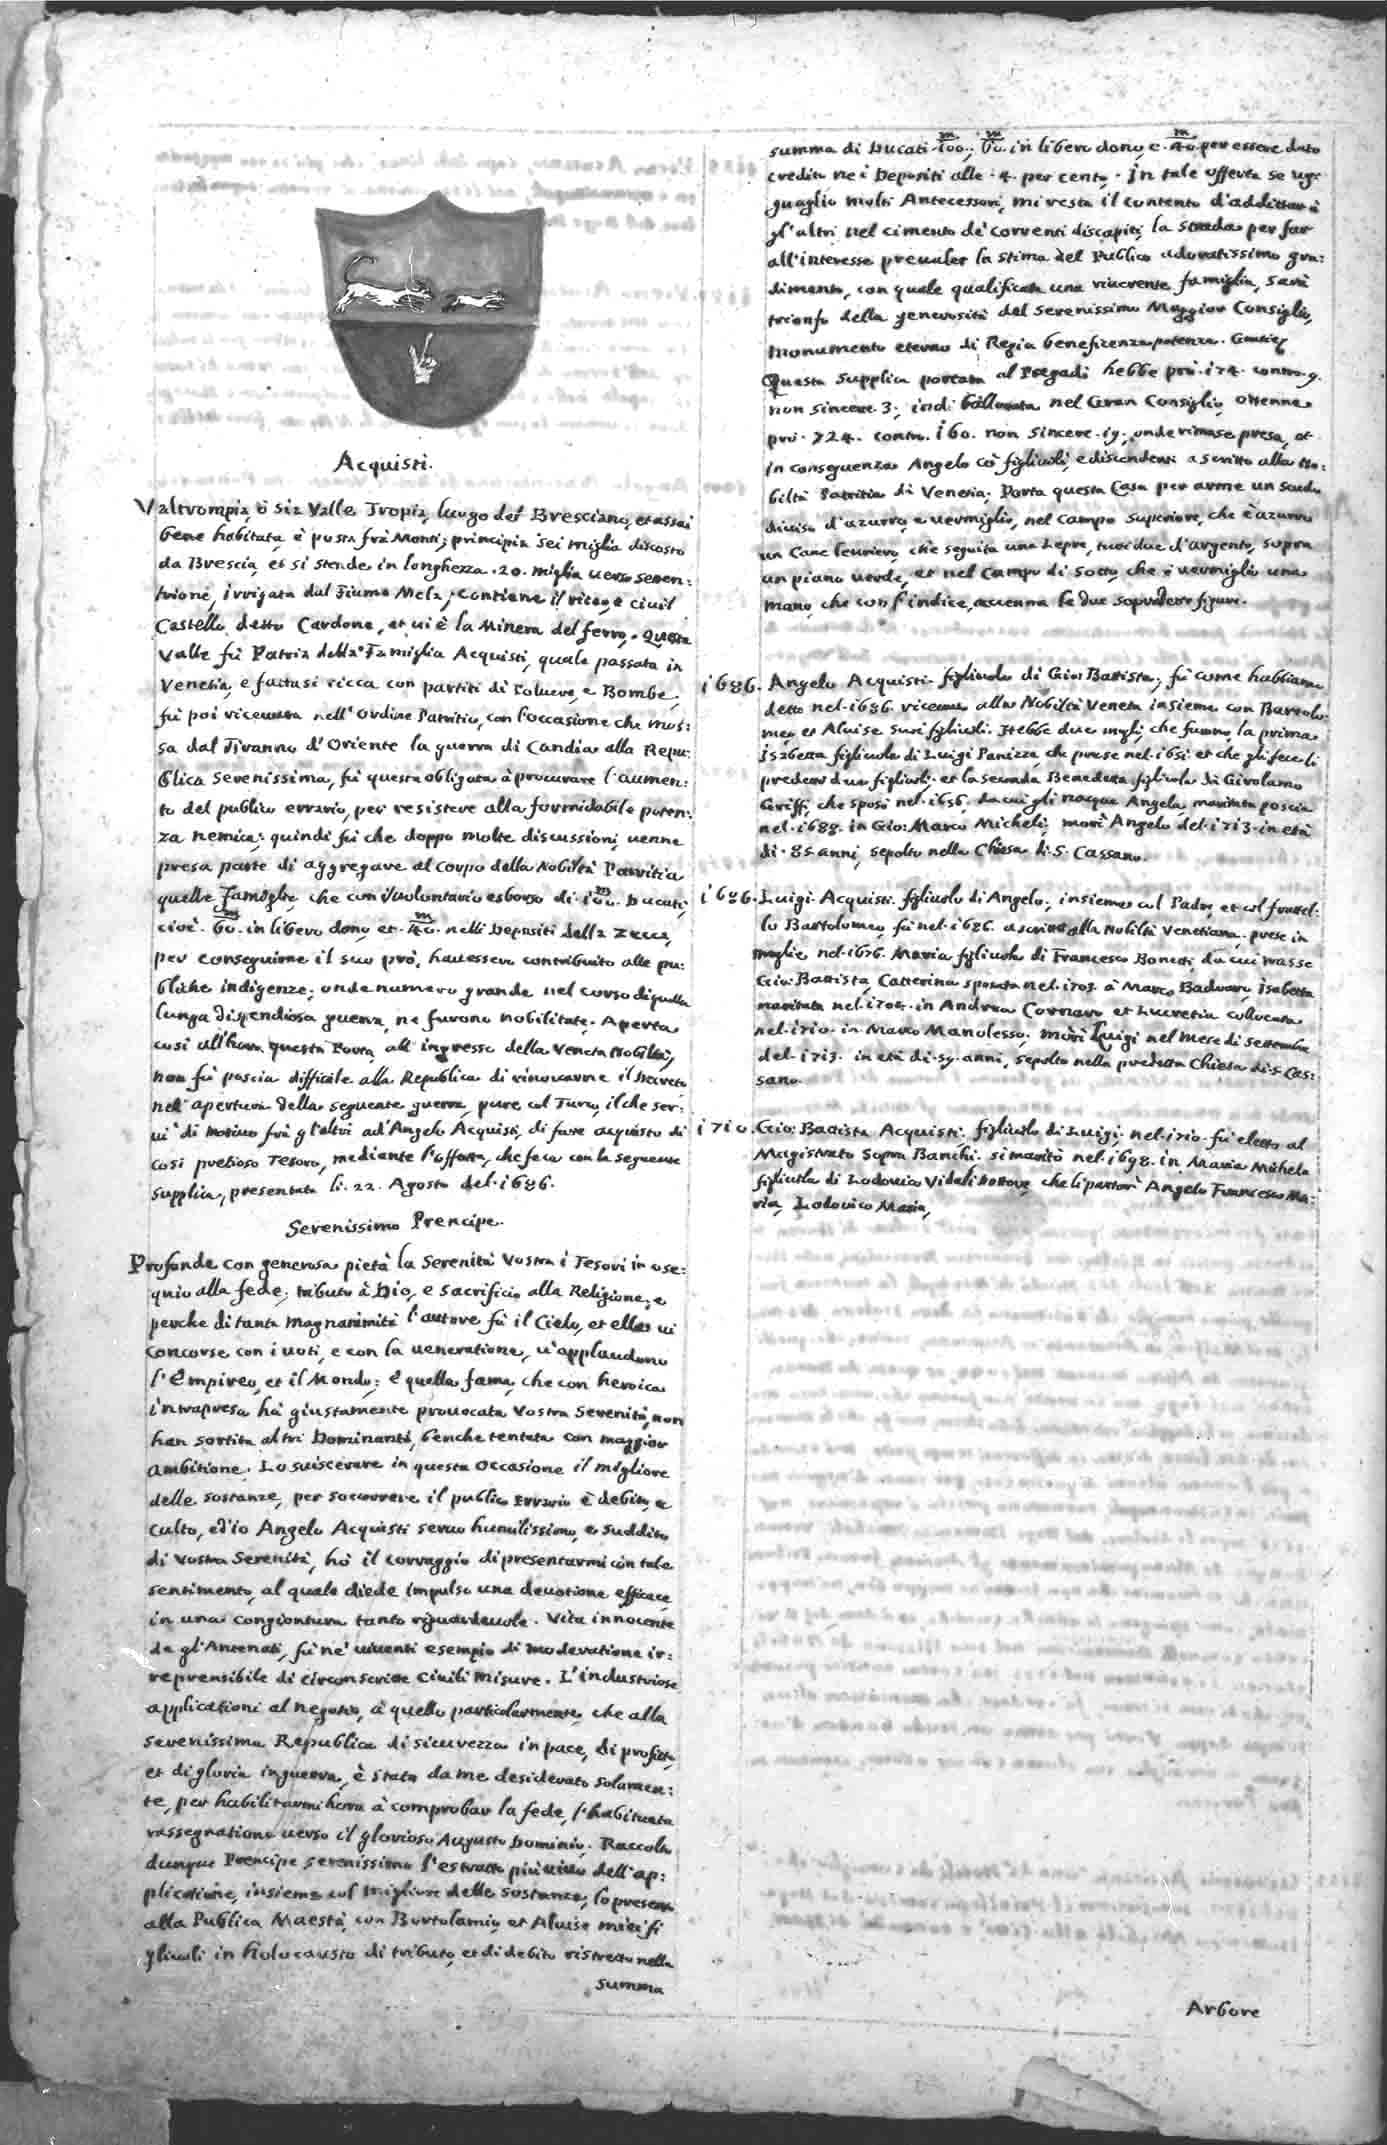 Acquisti.
Valtrompia, ò sia Valle Tropia, luogo del Bresciano, et assai
bene habitata, è posta frà Monti; principia sei miglia discosto
da Brescia, et si stende in longhezza .20. miglia verso Seten:
trione, irrigata dal Fiume Mela; contiene il ricco, e civil
Castello detto Cardone, et vi è la Minera del ferro. Questa
Valle fù Patria della Famiglia Acquisti, quale passata in
Venetia, e fattasi ricca con partiti di Polvere, e Bombe,
fù poi ricevuta nell'Ordine Patritio, con l'occasione che mos:
sa dal Tiranno d'Oriente la guerra di Candia alla Repu:
blica Serenissima, fù questa obligata à procurare l'aumen:
to del publico errario, per resistere alla formidabile poten:
za nemica; quindi fù che doppo molte discussioni venne
presa parte di aggregare al Corpo della Nobiltà Patritia
quelle Famiglie, che con volontario esborso di .100.m Ducati,
cioè .60.m in libero dono, et .40.m nelli Depositi della Zecca,
per conseguirne il suo prò, havessero contribuito alle pu:
bliche indigenze; onde numero grande nel corso di quella
lunga dispendiosa guerra, ne furono nobilitate. Aperta
così all'hora questa Porta all'ingresso della Veneta Nobiltà,
non fù poscia difficile alla Republica di rinovarne il Decreto
nell'apertura della seguente guerra, pure col Turco, il che ser:
vì di motivo frà gl'altri ad'Angelo Acquisti, di fare acquisto di
così pretioso Tesoro, mediante l'offerta, che fece con la seguente
supplica, presentata li .22. Agosto del .1686.
Serenissimo Prencipe.
Profonde con generosa pietà la Serenità Vostra i Tesori in osse:
quio alla fede, tributo à Dio, e Sacrificio alla Religione, e
perche di tanta magnanimità l'autore fù il Cielo, et ella vi
concorse con i voti, e con la veneratione, v'applaudono
l'Empireo, et il Mondo; e quella fama, che con heroica
intrapresa hà giustamente provocata Vostra Serenità, non
han sortita altri Dominanti, benche tentata con maggior
ambitione. Lo sviscerare in questa occasione il migliore
delle sostanze, per soccorrere il publico errario è debito, e
culto, ed'io Angelo Acquisti servo humilissimo, e suddito
di Vostra Serenità, hò il corraggio di presentarmi con tale
sentimento, al quale diede impulso una devotione efficace
in una congiontura tanto riguardevole. Vita innocente
de gl'Antenati, fù ne' viventi esempio di moderatione ir:
reprensibile di circonscritte civili misure. L'industriose
applicationi al negotio, à quello particolarmente, che alla
Serenissima Republica di sicurezza in pace, di profitto,
et di gloria in guerra, è stato da me desiderato solamen:
te, per habilitarmi hora à comprobar la fede, l'habituata
rassegnatione verso il glorioso Augusto Dominio. Raccolto
dunque Prencipe serenissimo l'estratto più vivo dell'ap:
plicatione, insieme col migliore delle sostanze, lo presento
alla Publica Maestà, con Bortolamio, et Aluise miei fi
gliuoli in holocausto di tributo, et di debito ristretto nella
summa
summa di Ducati .100.m; .60.m in libero dono, e .40.m per esserne dato
credito ne i Depositi alle .4. per cento. In tale offerta se ug:
guaglio molti Antecessori, mi resta il contento d'additar à
gl'altri nel cimento de' correnti discapiti, la strada per far
all'interesse prevaler la stima del Publico adoratissimo gra:
dimento, con quale qualificata una riverente famiglia, sarà
trionfo della generosità del Serenissimo Maggior Consiglio,
monumento eterno di Regia beneficenza potenza. Gratie.
Questa supplica portata al Pregadi hebbe prò .174. contro .9.
non sincere .3; indi ballottata nel Gran Consiglio, ottenne
prò .724. contro .160. non sincere .19. onde rimase presa, et
in conseguenza Angelo cò figliuoli, e discendenti ascritto alla No:
biltà Patritia di Venetia. Porta questa Casa per arme un scudo
diviso d'azurro, e vermiglio, nel Campo superiore, che è azurro
un Cane levriero, che seguita una Lepre, tutti due d'argento, sopra
un piano verde, et nel Campo di sotto, che è vermiglio una
mano, che con l'indice, accenna le due sopradette figure.
1686. Angelo Acquisti figliuolo di Gio: Battista, fù come habbiamo
detto nel .1686. ricevuto alla Nobiltà Veneta insieme con Bartolo:
meo et Aluise suoi figliuoli. Hebbe due mogli, che furono, la prima
Isabetta figliuola di Luigi Panizza, che prese nel .1651. et che gli fece li
predetti due figliuoli; et la seconda Benedetta figliuola di Girolamo
Griffi, che sposò nel .1656. da cui gli nacque Angela, maritata poscia
nel .1688. in Gio: Marco Micheli, morì Angelo del .1713. in età
di .85. anni, sepolto nella Chiesa di S. Cassano.
1686. Luigi Acquisti figliuolo di Angelo, insieme col Padre, et col fratel:
lo Bartolomeo, fù nel .1686. ascritto alla Nobiltà Venetiana. prese in
moglie nel .1676. Maria figliuola di Francesco Bonetti, da cui trasse
Gio: Battista, Catterina sposata nel .1703. à Marco Badoaro, Isabetta
maritata nel .1704. in Andrea Cornaro et Lucretia collocata
nel .1710. in Marco Manolesso. morì Luigi nel mese di Settembre
del .1713. in età di .59. anni, sepolto nella predetta Chiesa di S. Cas:
sano.
1710. Gio: Battista Acquisti, figliuolo di Luigi, nel .1710. fù eletto al
Magistrato Sopra Banchi. si maritò nel .1698. in Maria Michela
figliuola di Lodovico Vidali Dottore, che li partorì Angelo Francesco Ma:
ria, Lodovico Maria,
Arbore